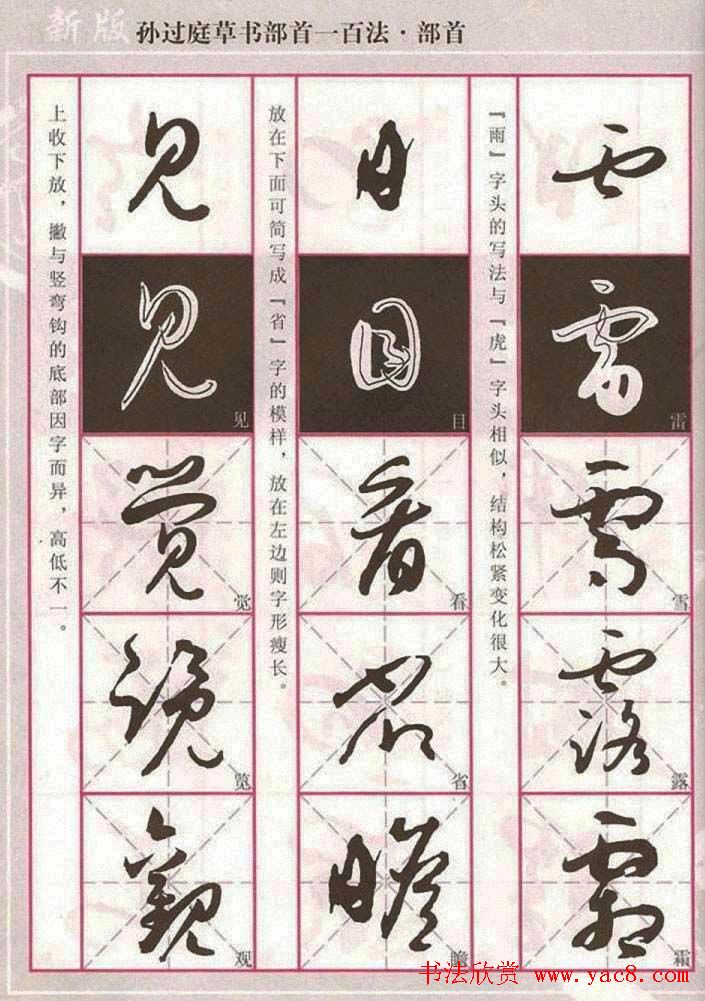 新版 孙过庭草书部首一百法·部首
雷
雪
露
霜
『雨』字头的写法与『虎』字头相似，结构松紧变化很大。
目
看
省
瞻
放在下面可简写成『省』字的模样，放在左边则字形瘦长。
见
见
觉
览
观
上收下放，撇与竖弯钩的底部因字而异，高低不一。
书法欣赏 www.yac8.com